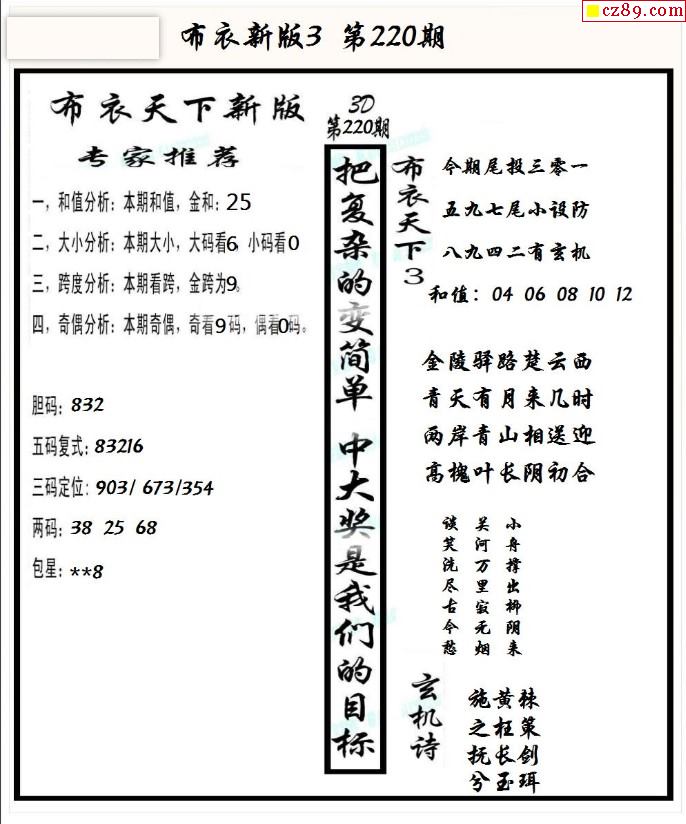 cz89.com
布衣新版3 第220期
布衣天下新版
专家推荐
一，和值分析：本期和值，金和：25
二，大小分析：本期大小，大码看6，小码看0
三，跨度分析：本期看跨，金跨为9。
四，奇偶分析：本期奇偶，奇看9码，偶看0码。
胆码：832
五码复式：83216
三码定位：903/ 673/354
两码：38 25 68
包星：**8
3D
第220期
把复杂的变简单 中大奖是我们的目标
布衣天下3
今期尾投三零一
五九七尾小设防
八九四二有玄机
和值：04 06 08 10 12
金陵驿路楚云西
青天有月来几时
两岸青山相送迎
高槐叶长阴初合
小舟撑出柳阴来
关河万里寂无烟
谈笑洗尽古今愁
玄机诗
施黄棘
之枉策
抚长剑
兮玉珥